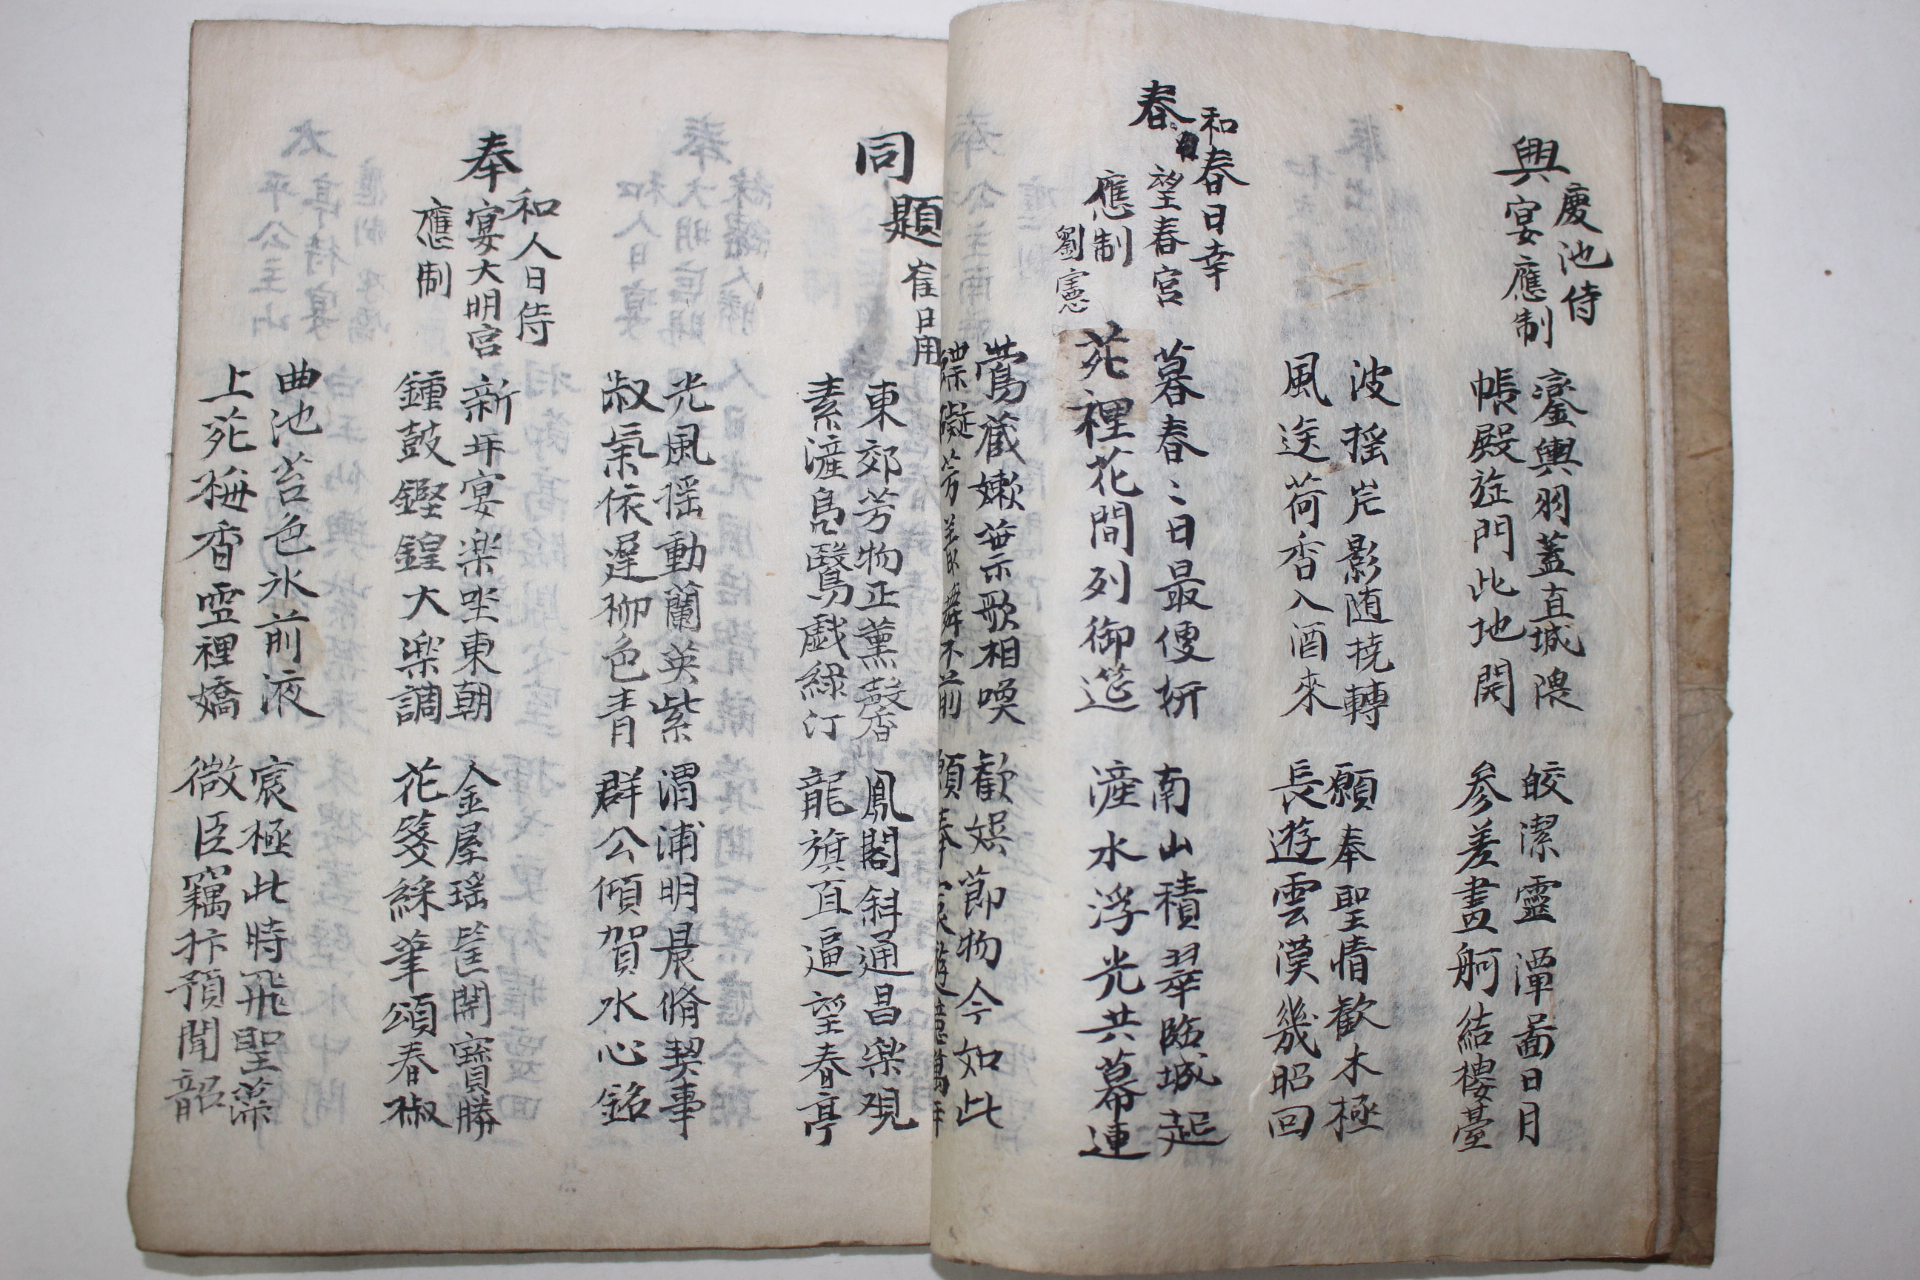 興慶池侍
宴應制
鑾輿羽蓋直城隈
帳殿旌門此地開
皎潔靈潭圖日月
参差畫舸結樓臺
波揺岸影随橈轉
風送荷香入酒來
願奉聖情歡未極
長遊雲漢幾昭回
春和春日幸
日望春宮
應制 劉憲
暮春〻日最便妍
苑裡花間列御筵
南山積翠臨城起
滻水浮光共幕連
鶯蔵嫩葉歌相喚
蝶礙芳叢舞不前
歓娯節物今如此
願奉宸遊億萬年
同題 崔日用
東郊芳物正薫馨
素滻鳬鷖戯緑汀
鳳閣斜通昌楽観
龍旗直逼望春亭
光風揺動蘭英紫
淑氣依遅柳色青
渭浦明晨脩契事
群公傾賀水心銘
奉和人日侍
宴大明宮
應制
新年宴楽坐東朝
鍾鼓鏗鍠大楽調
金屋瑶筐開寳勝
花箋綵筆頌春椒
曲池苔色氷前液
上苑梅香雪裡嬌
宸極此時飛聖藻
微臣竊抃預聞韶